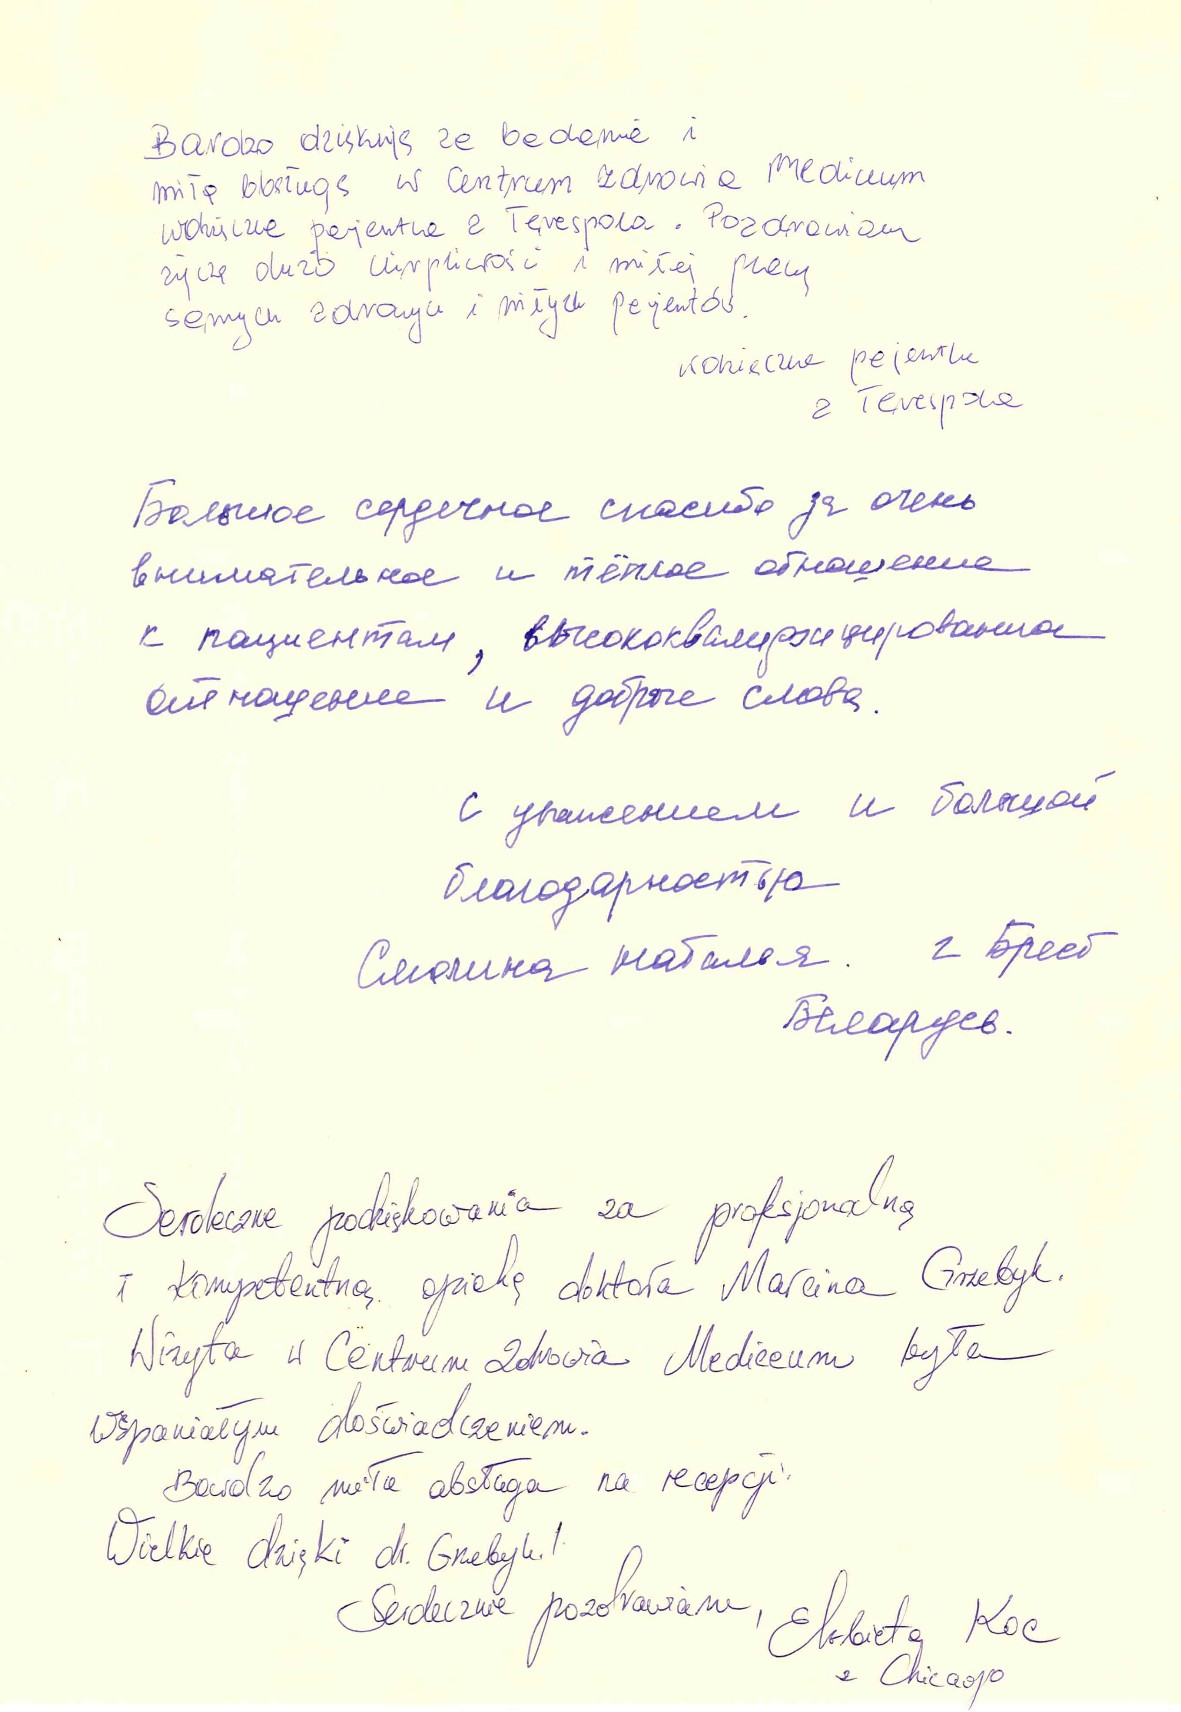 Bardzo dziękuję za badanie i
miłą obsługę w Centrum Zdrowia Mediceum
wdzięczna pacjentka z Terespola. Pozdrawiam
życzę dużo cierpliwości i miłej pracy
samych zdrowych i miłych pacjentów.
wdzięczna pacjentka
z Terespola
Большое сердечное спасибо за очень
внимательное и тёплое отношение
к пациентам, высококвалифицированное
отношение и добрые слова.
С уважением и большой
благодарностью
Смолина Наталья. г Брест
Беларусь.
Serdeczne podziękowania za profesjonalną
i kompetentną opiekę doktora Marcina Grzebyk.
Wizyta w Centrum Zdrowia Mediceum była
wspaniałym doświadczeniem.
Bardzo miła obsługa na recepcji.
Wielkie dzięki dr. Grzebyk!
Serdecznie pozdrawiam, Elżbieta Koc
z Chicago